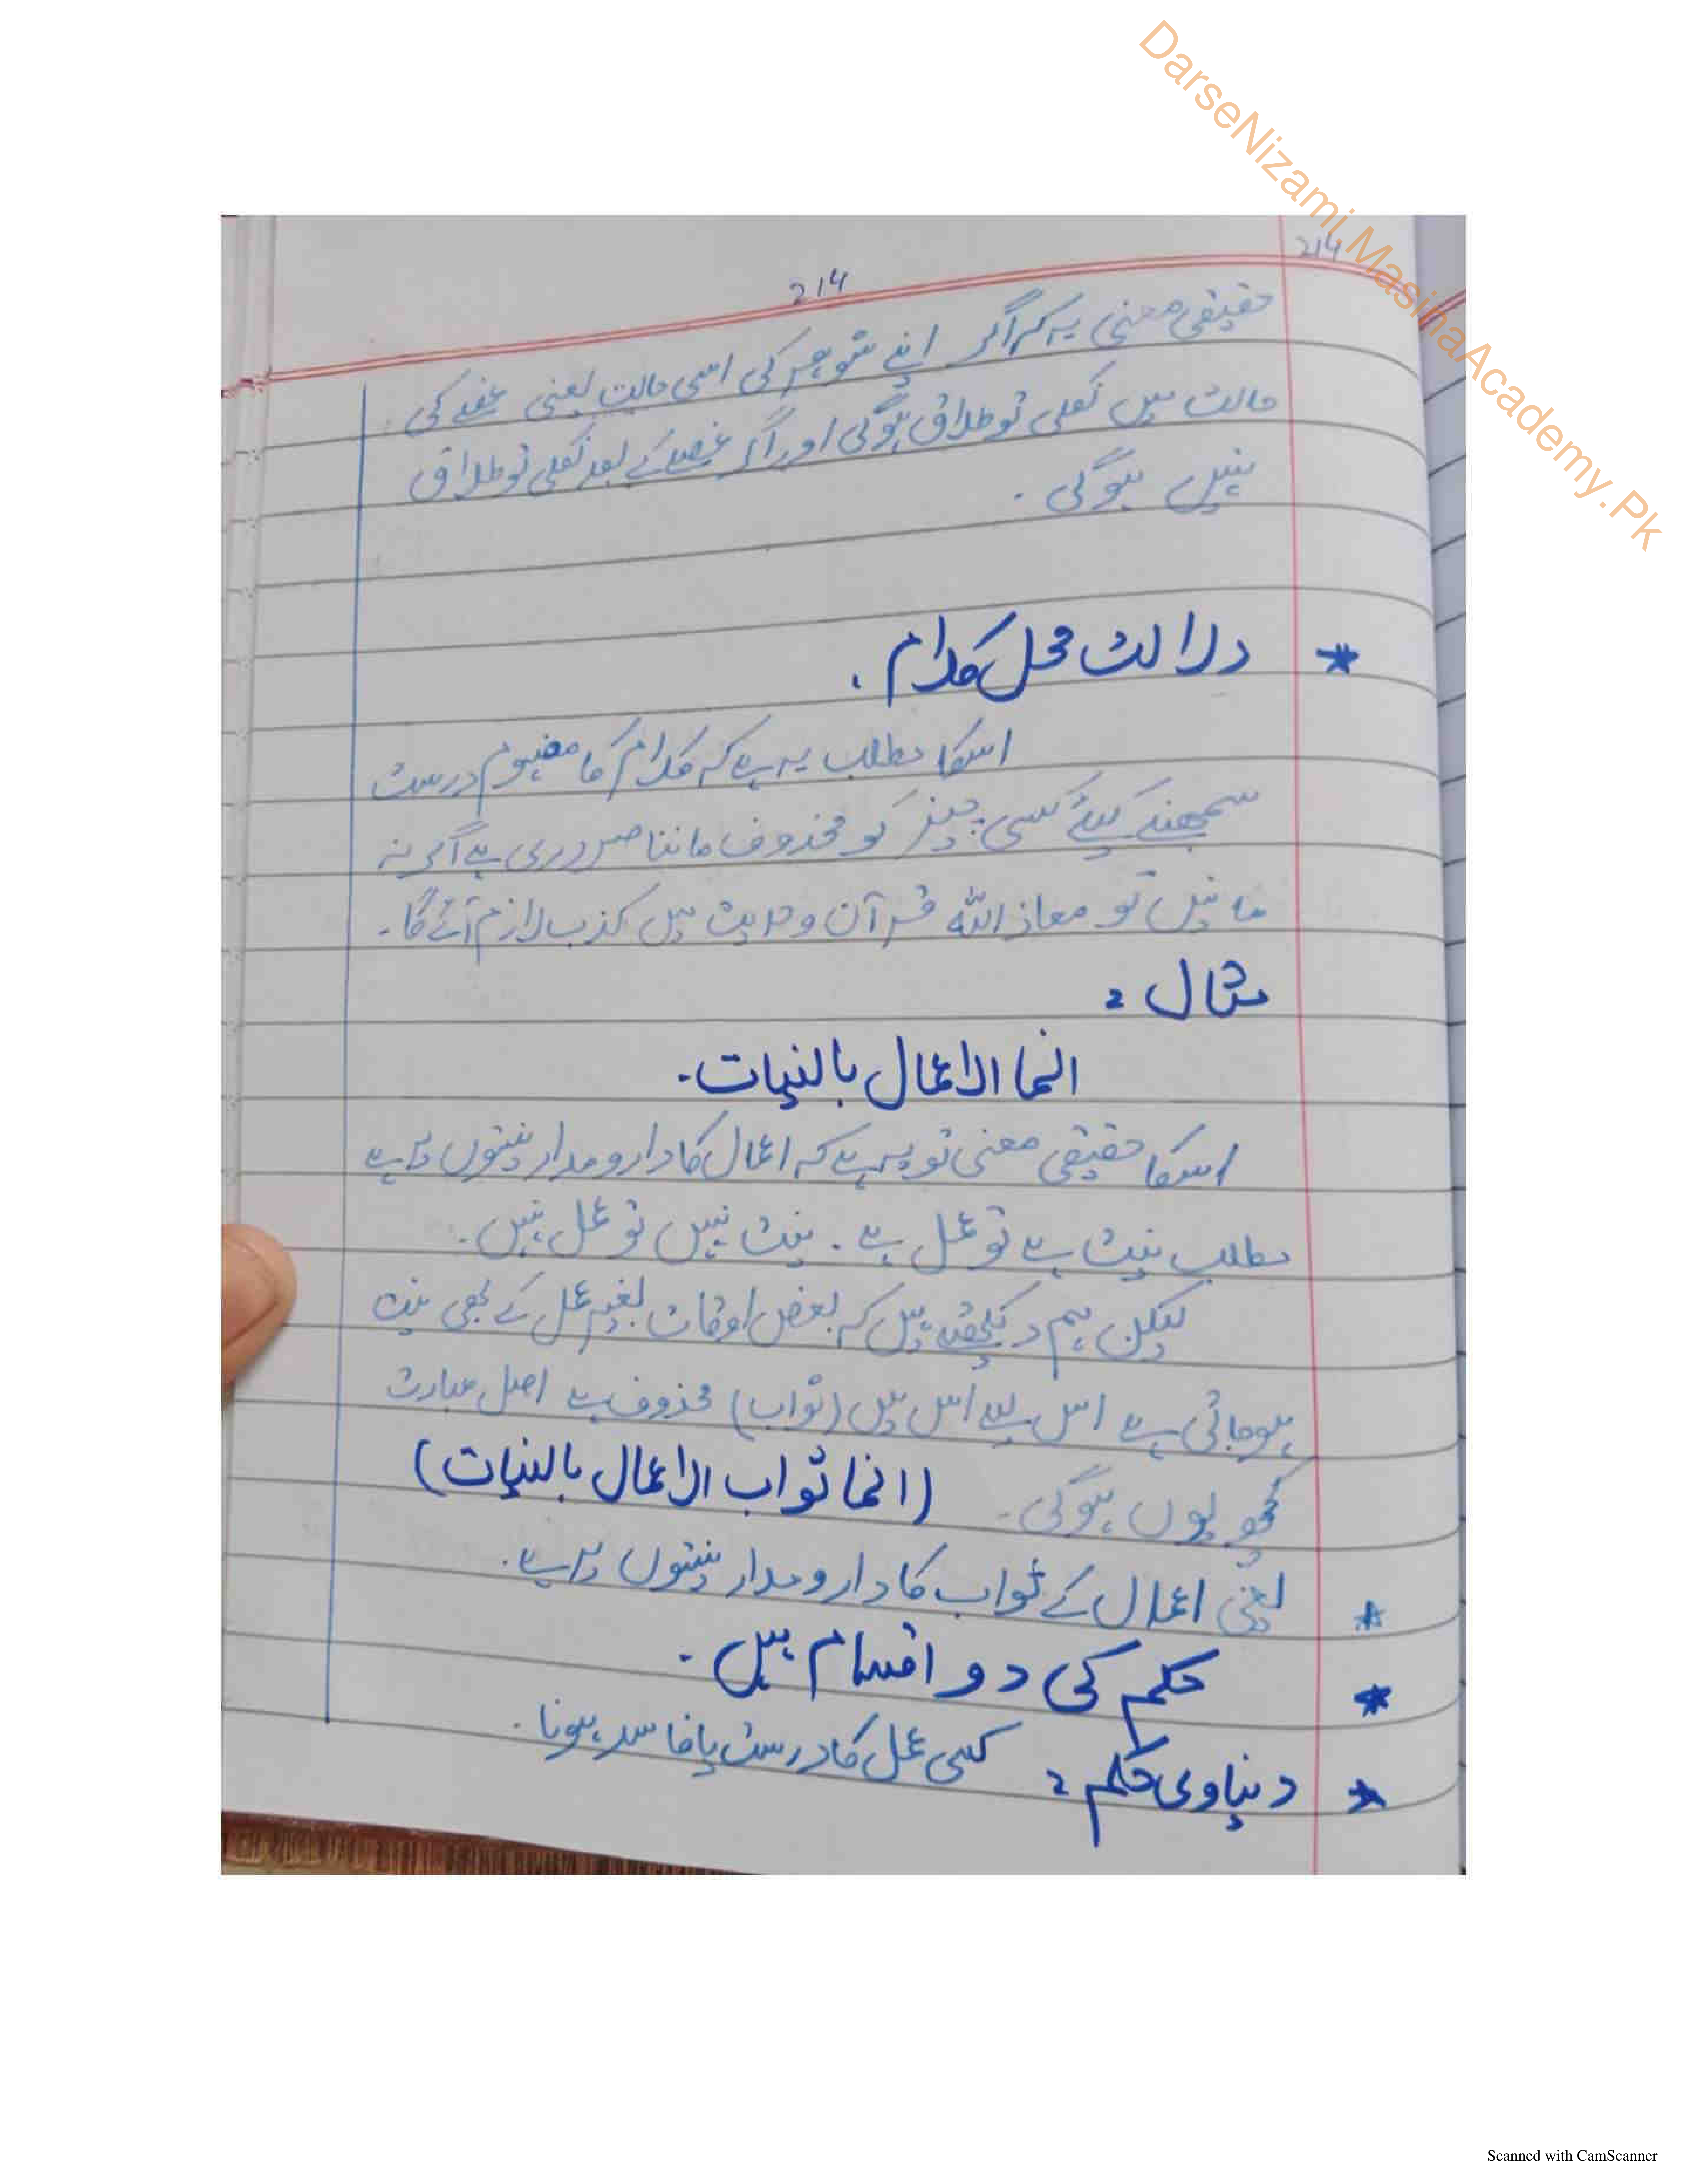 DarseNizami.MasihaAcademy.Pk
214
214
حقیقی معنی یہ کہ اگر اپنے شوہر کی اسی حالت یعنی غصے کی
حالت میں نکلی تو طلاق ہوگی اور اگر غصے کے بعد نکلی تو طلاق
نہیں ہوگی ۔
* دلالت محل کلام ۔
اسکا مطلب یہ ہے کہ کلام کا مفہوم درست
سمجھنے کیلئے کسی چیز کو محذوف ماننا ضروری ہے اگر نہ
مانیں تو معاذ اللہ قرآن و حدیث میں کذب لازم آئے گا ۔
مثال :
انما الاعمال بالنیات ۔
اسکا حقیقی معنی تو یہ ہے کہ اعمال کا دارومدار نیتوں پر ہے
مطلب نیت ہے تو عمل ہے ۔ نیت نہیں تو عمل نہیں ۔
لیکن ہم دیکھتے ہیں کہ بعض اوقات بغیر عمل کے بھی نیت
ہوجاتی ہے اس لیے اس میں (ثواب) محذوف ہے اصل عبارت
کچھ یوں ہوگی ۔ (انما ثواب الاعمال بالنیات)
* یعنی اعمال کے ثواب کا دارومدار نیتوں پر ہے ۔
* حکم کی دو اقسام ہیں ۔
* دنیاوی حکم : کسی عمل کا درست یا فاسد ہونا ۔
Scanned with CamScanner